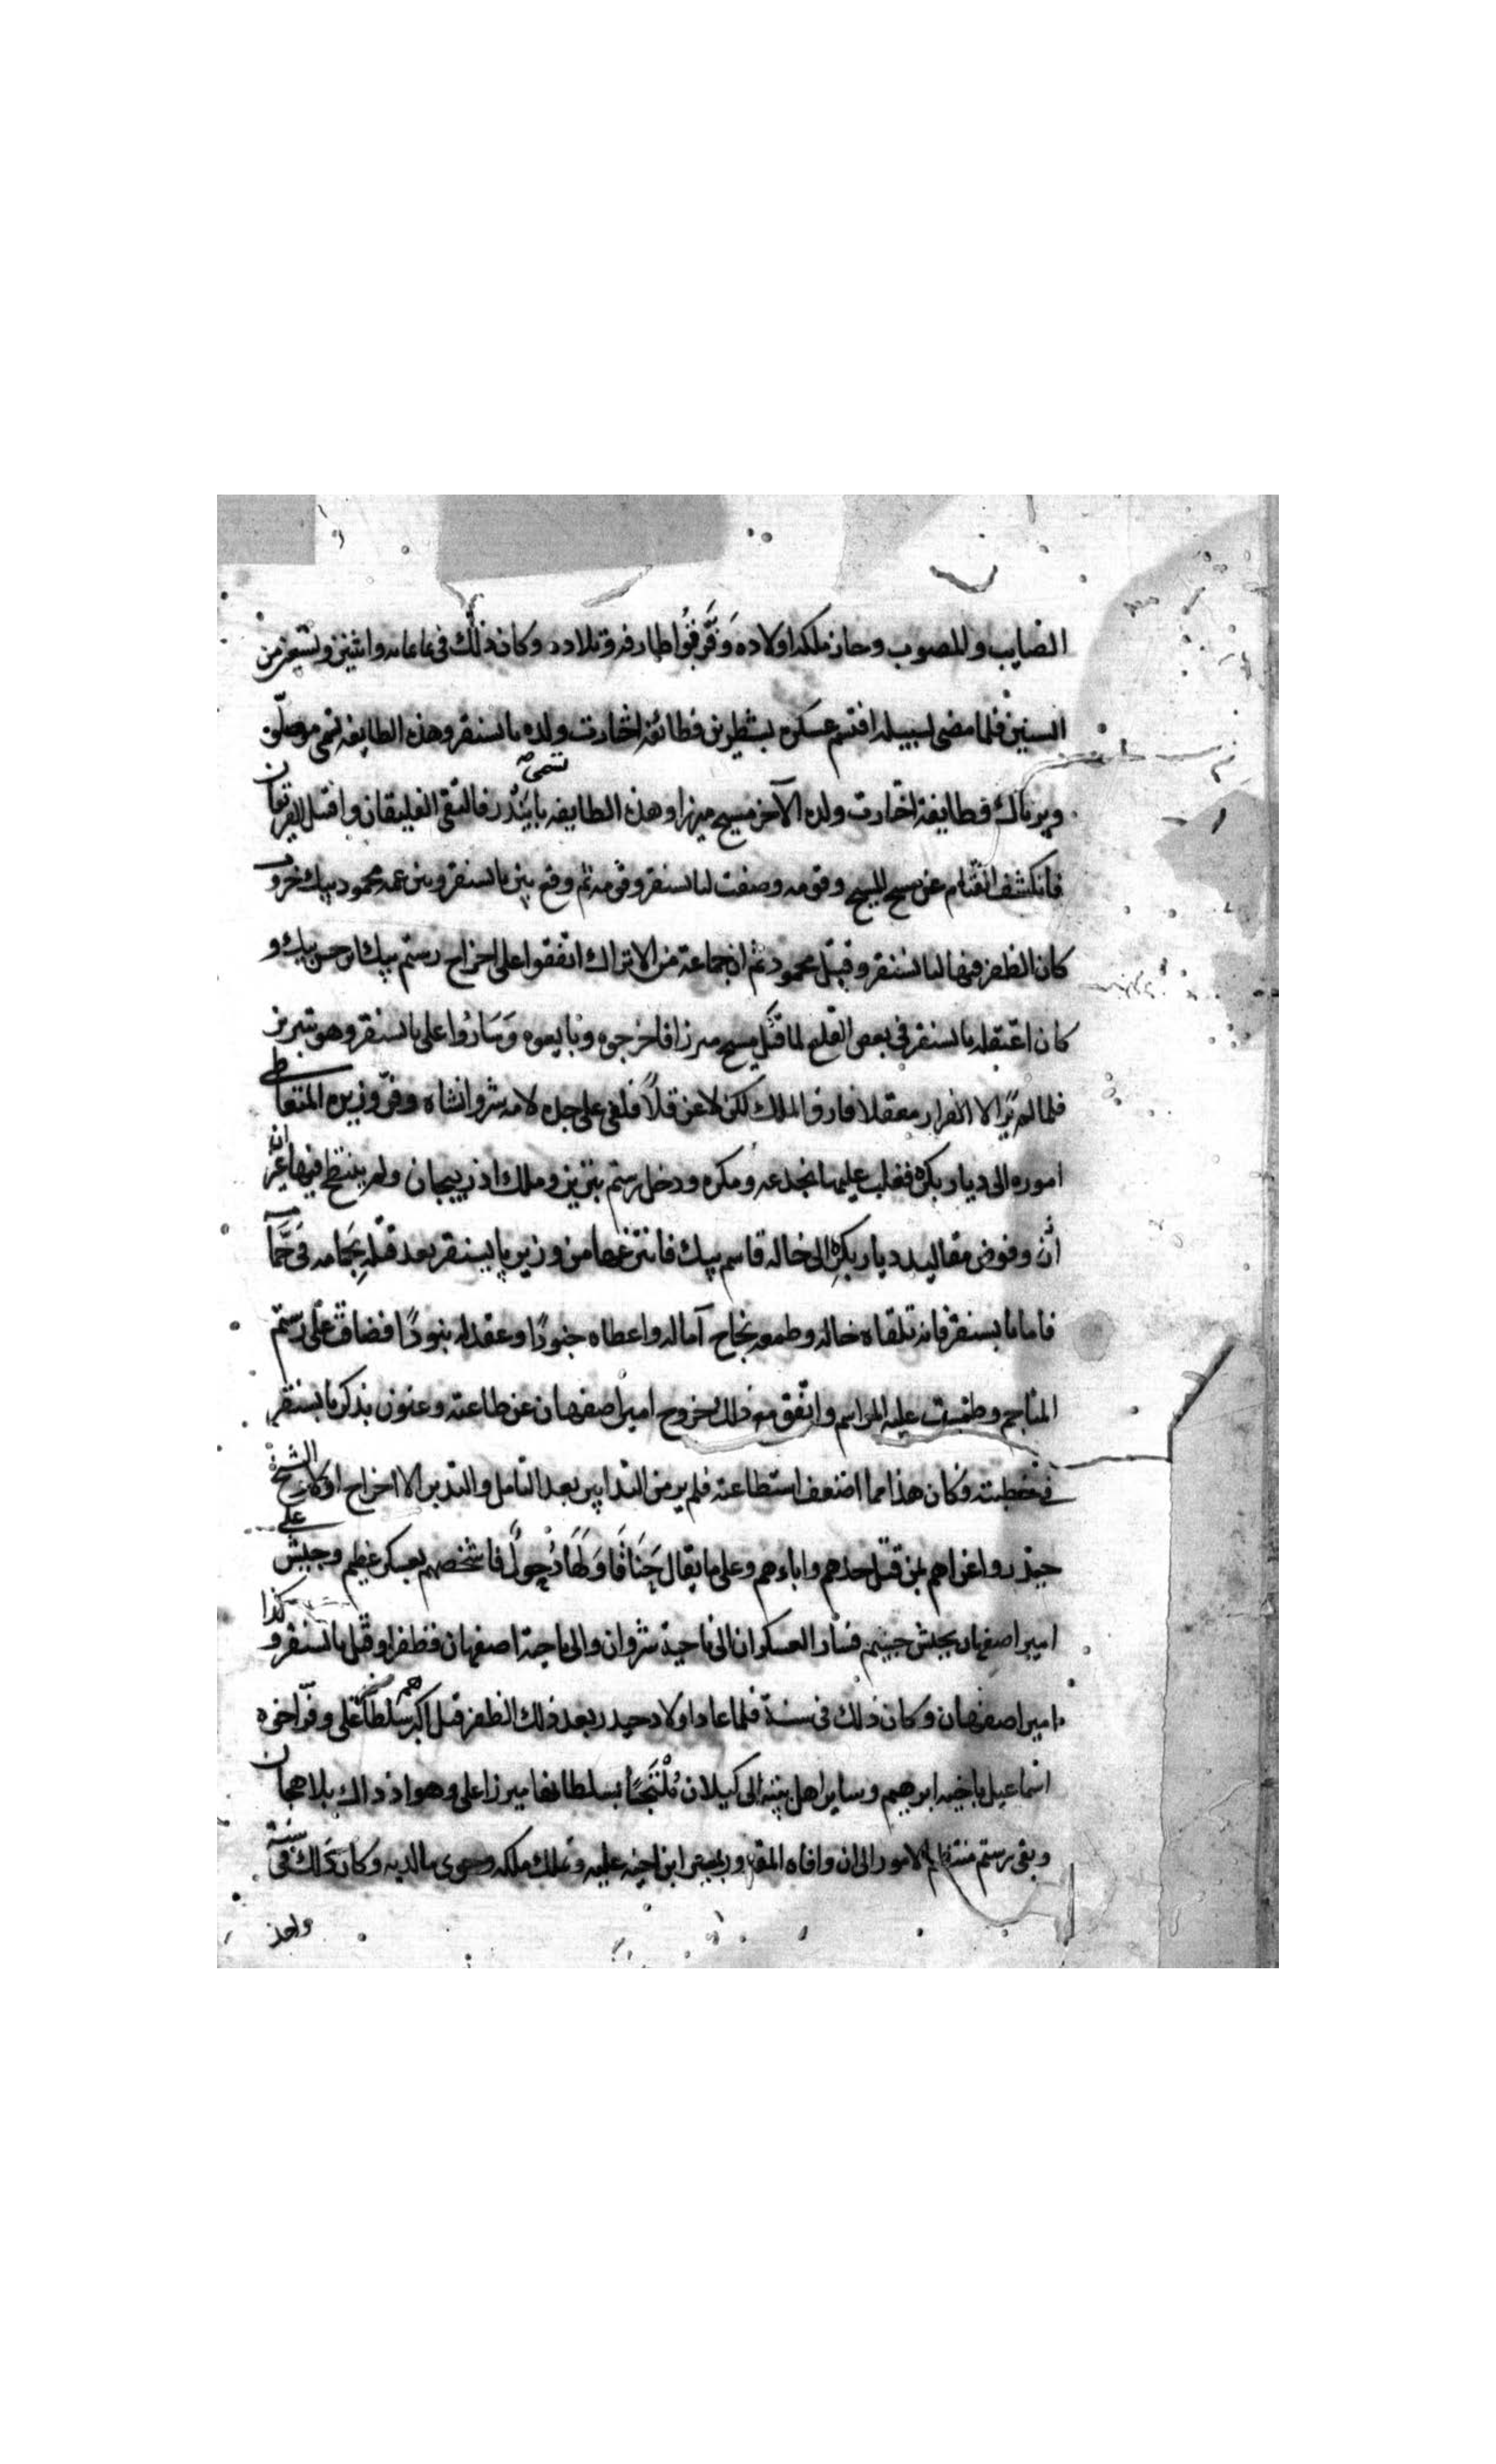 الصايب والمصوب وحاز ملكه اولاده وَفَرَّقُوا طارفه وتلاده وكان ذلك في عام وا ثنين وتسعين من
السنين فلما مضى لسبيله اقتسم عسكره بشطرين فطائفة اختارت ولده بايسنقر وهذه الطايفه تسمى موصلّو
وپرناك وطايفة اختارت ولده الآخر مسيح ميرزا وهذه الطايفه تسمى بايندر فالتقى الفيلقان واقتتل الفريقان
فانكشف القتام عن مسيح المسيح وقومه وصفت لبايسنقر وقومه ثم وقع بين بايسنقر وبين عمه محمود بيك حروب
كان الظفر فيها لبايسنقر وقتل محمود ثم ان جماعة من الاتراك اتفقوا على اخراج رستم بيك بن حسن بيك و
كان اعتقله بايسنقر في بعض القلاع لما قتل مسيح ميرزا فاخرجوه وبايعوه وَسَارُوا على بايسنقر وهو بتبريز
فلما لم يَرَ الا الفرار معقلا فارق الملك لكن لا عن قلاً فلفى على جده لامه شروانشاه وفرّ وزيره المتعاطي
اموره الى ديار بكر فغلب عليها بخدعه ومكره ودخل رستم تبريز وملك اذربيجان ولم ينتطح فيها عنزان
وفوض مقاليد ديار بكر الى خاله قاسم بيك فانتزعها من وزير بايسنقر بعد قتله
فاما بايسنقر فانه تلقاه خاله وطمعه بنجاح آماله واعطاه جنودًا وعقد له بنودًا فضاق على رستم
المناجح وطمست عليه المراسم واتفق مع ذلك خروج امير اصفهان عن طاعته وعنون بذكر بايسنقر
في خطبته وكان هذا مما اضعف استطاعته فلم ير من التدابير بعد التامل والتدبر الا اخراج اولاد الشيخ
حيدر واغراهم بمن قتل جدهم واباءهم وعلى ما يقال فاشخصهم بعسكر عظيم وجيش على
امير اصفهان بجيش جسيم فسار العسكران الى ناحية شروان والى ناحية اصفهان فظفرا وقتل بايسنقر وكذا
امير اصفهان وكان ذلك في سنة فلما عاد اولاد حيدر بعد ذلك الظفر قتل اكبرهم سلطانعلي وفرّ اخوه
اسماعيل باخيه ابرهيم وساير اهل بيته الى كيلان مُلْتَجِئًا بسلطانها ميرزا علي وهو اذ ذاك بلاهجان
وبقى رستم منتظم الامور الى ان وافاه ابن اخيه عليه وتملك ملكه وحوى ما لديه وكان ذلك في سنة
واحد